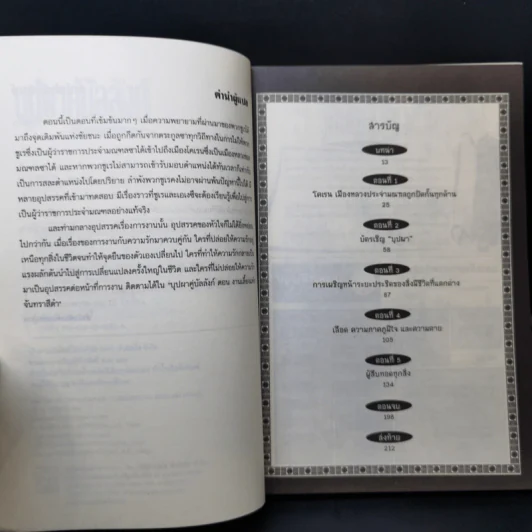 คำนำผู้แปล
ตอนนี้เป็นตอนที่เข้มข้นมากๆ เมื่อความพยายามที่ผ่านมาของพวกซูเรได้
มาถึงจุดเดิมพันแห่งชัยชนะ เมื่อถูกกีดกันจากตระกูลซาทุกวิถีทางในการไม่ให้
ซูเรซึ่งเป็นผู้ว่าราชการประจำมณฑลซาได้เข้าไปถึงเมืองโคเรนซึ่งเป็นเมืองหลวง
มณฑลซาได้ และหากพวกซูเรไม่สามารถเข้ารับมอบตำแหน่งได้ทันเวลา
เป็นการสละตำแหน่งไปโดยปริยาย ลำพังพวกซูเรคงไม่อาจผ่านพ้นปัญหานี้ไปได้
หลายอุปสรรคที่เข้ามาทดสอบ มีเรื่องราวที่ซูเรและเอเงซึจะต้องเรียนรู้เพื่อไปสู่การ
เป็นผู้ว่าราชการประจำมณฑลอย่างแท้จริง
และท่ามกลางอุปสรรคเรื่องการงานนั้น อุปสรรคของหัวใจก็ไม่ได้ยิ่งหย่อน
ไปกว่ากัน เมื่อเรื่องของการงานกับความรักมาควบคู่กัน ใครที่ปล่อยให้ความรัก
เหนือทุกสิ่งในชีวิตจนทำให้จุดยืนของตัวเองเปลี่ยนไป ใครที่ทำให้ความรัก
แรงผลักดันนำไปสู่การเปลี่ยนแปลงครั้งใหญ่ในชีวิต และใครที่ไม่ปล่อยให้ความ
มาเป็นอุปสรรคต่อหน้าที่การงาน ติดตามได้ใน "บุปผาคู่บัลลังก์ ตอน งานเลี้ยง
จันทราสีดำ"
สารบัญ
บทนำ
13
ตอนที่ 1
โคเรน เมืองหลวงประจำมณฑลถูกปิดกั้นทุกด้าน
25
ตอนที่ 2
บัตรเชิญ "บุปผา"
58
ตอนที่ 3
การเผชิญหน้าระยะประชิดของสิ่งมีชีวิตที่แตกต่าง
87
ตอนที่ 4
เลือด ความภาคภูมิใจ และความตาย
105
ตอนที่ 5
ผู้สืบทอดทุกสิ่ง
134
ตอนจบ
198
ส่งท้าย
212